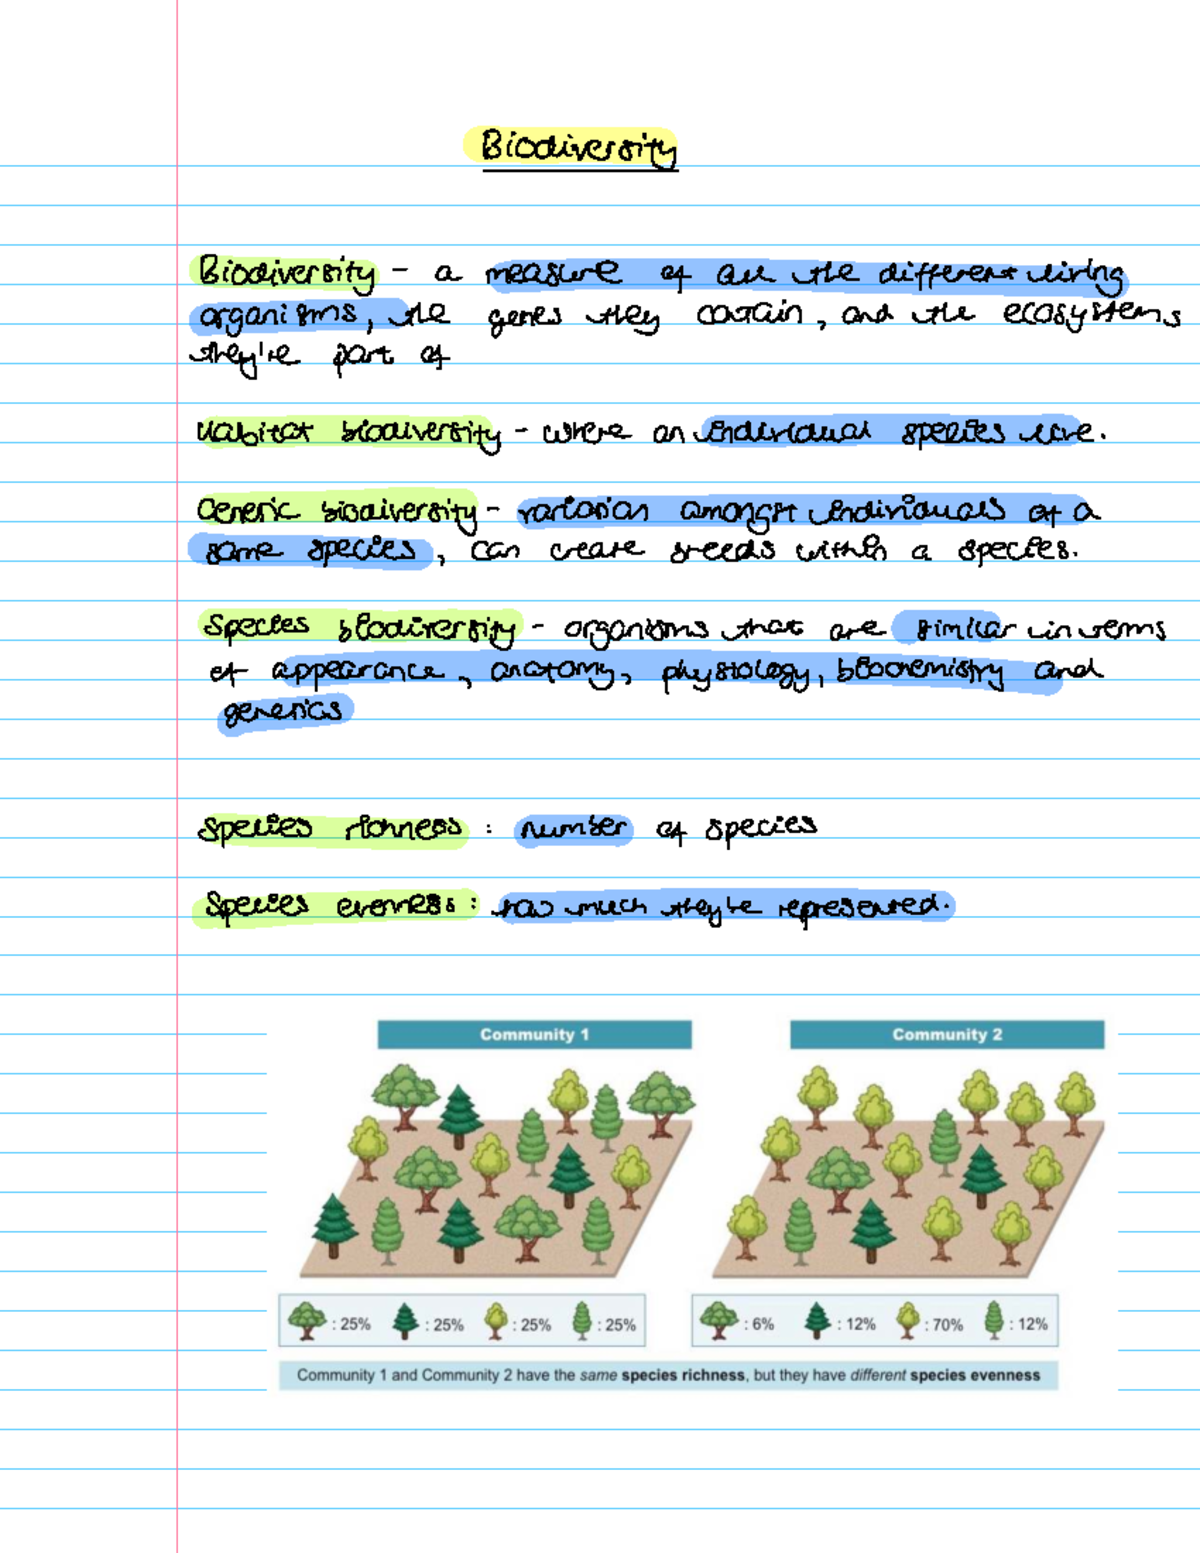 Biodiversity
Biodiversity - a measure of all the different living
organisms, the genes they contain, and the ecosystems
they're part of
Habitat biodiversity - where an individual species live.
Genetic biodiversity - variation amongst individuals of a
same species, can create breeds within a species.
Species biodiversity - organisms that are similar in terms
of appearance, anatomy, physiology, biochemistry and
genetics
Species richness : number of species
Species evenness : how much they're represented.
Community 1 Community 2
: 25% : 25% : 25% : 25% : 6% : 12% : 70% : 12%
Community 1 and Community 2 have the same species richness, but they have different species evenness